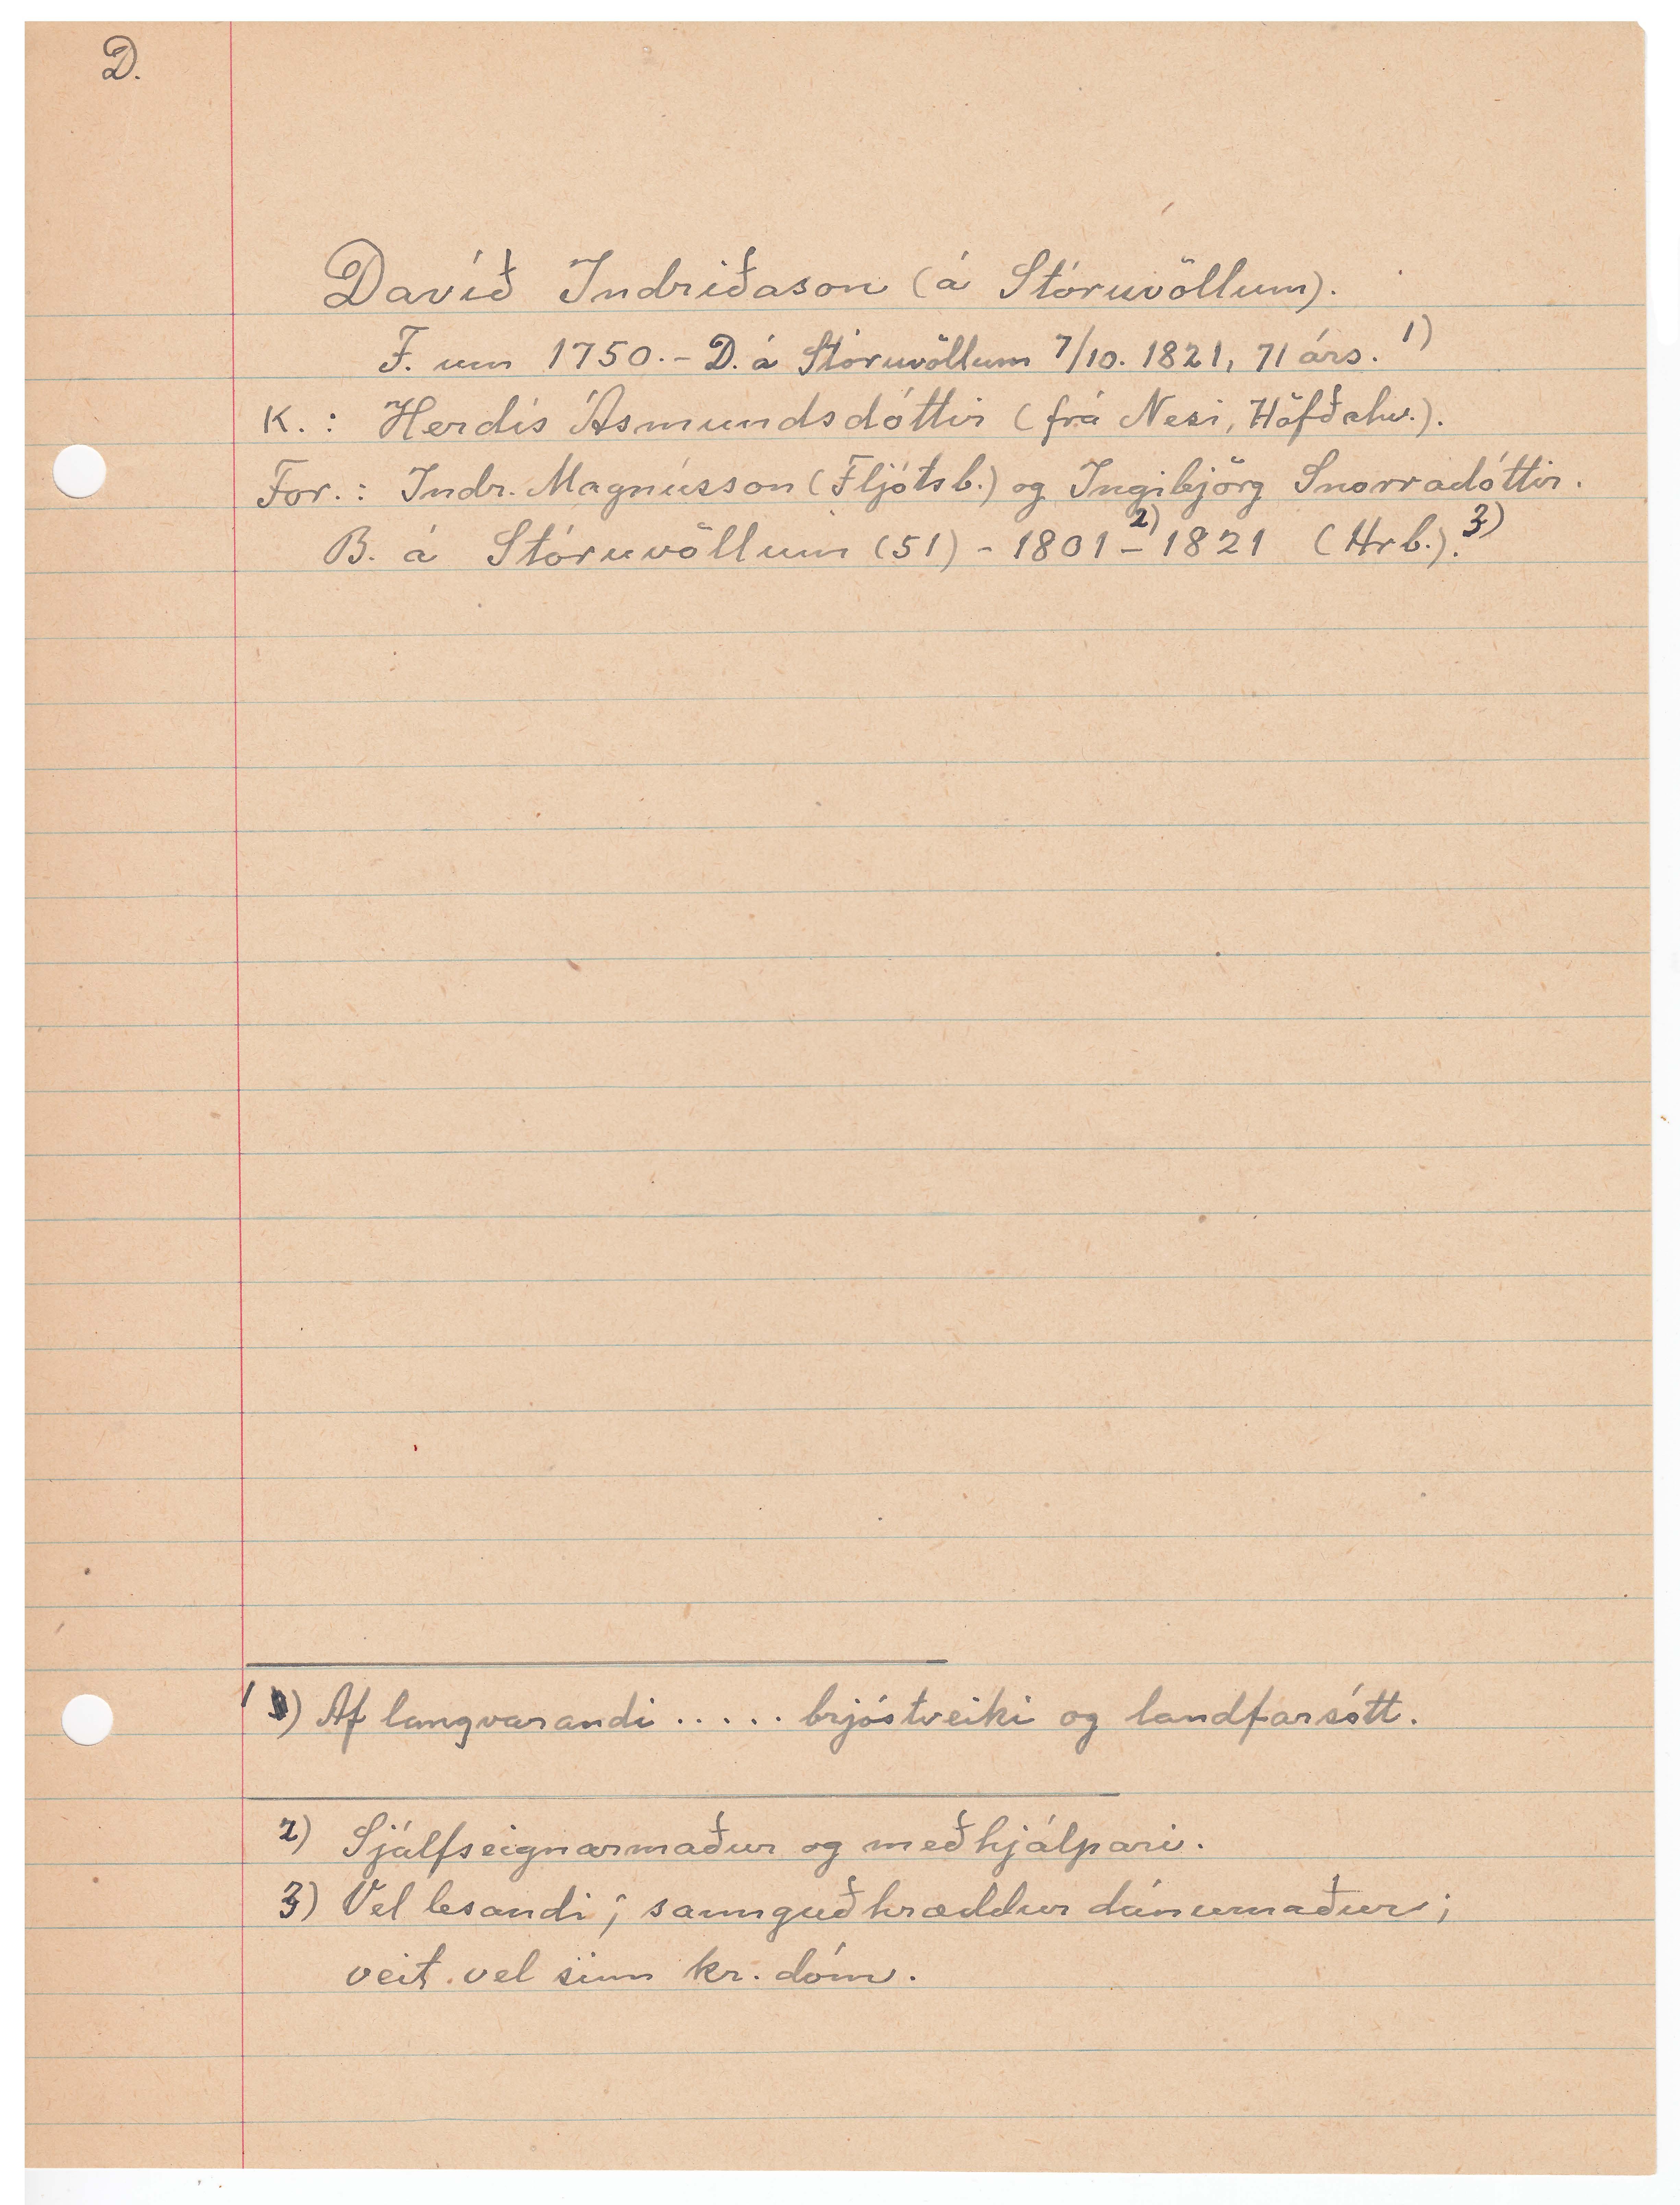 D.
Davíð Indriðason (á Stóruvöllum).
F. um 1750. - D. á Stóruvöllum 7/10. 1821, 71 árs. 1)
K. : Herdís Ásmundsdóttir (frá Nesi, Höfðahv.).
For. : Indr. Magnússon (Fljótsb.) og Ingibjörg Snorradóttir.
B. á Stóruvöllum (51) - 1801 - 2) 1821 (Hrb.). 3)
1) Af langvarandi ..... brjóstveiki og landfarsótt.
2) Sjálfseignarmaður og meðhjálpari.
3) Vel lesandi; sannguðhræddur dánumaður;
veit vel sinn kr. dóm.